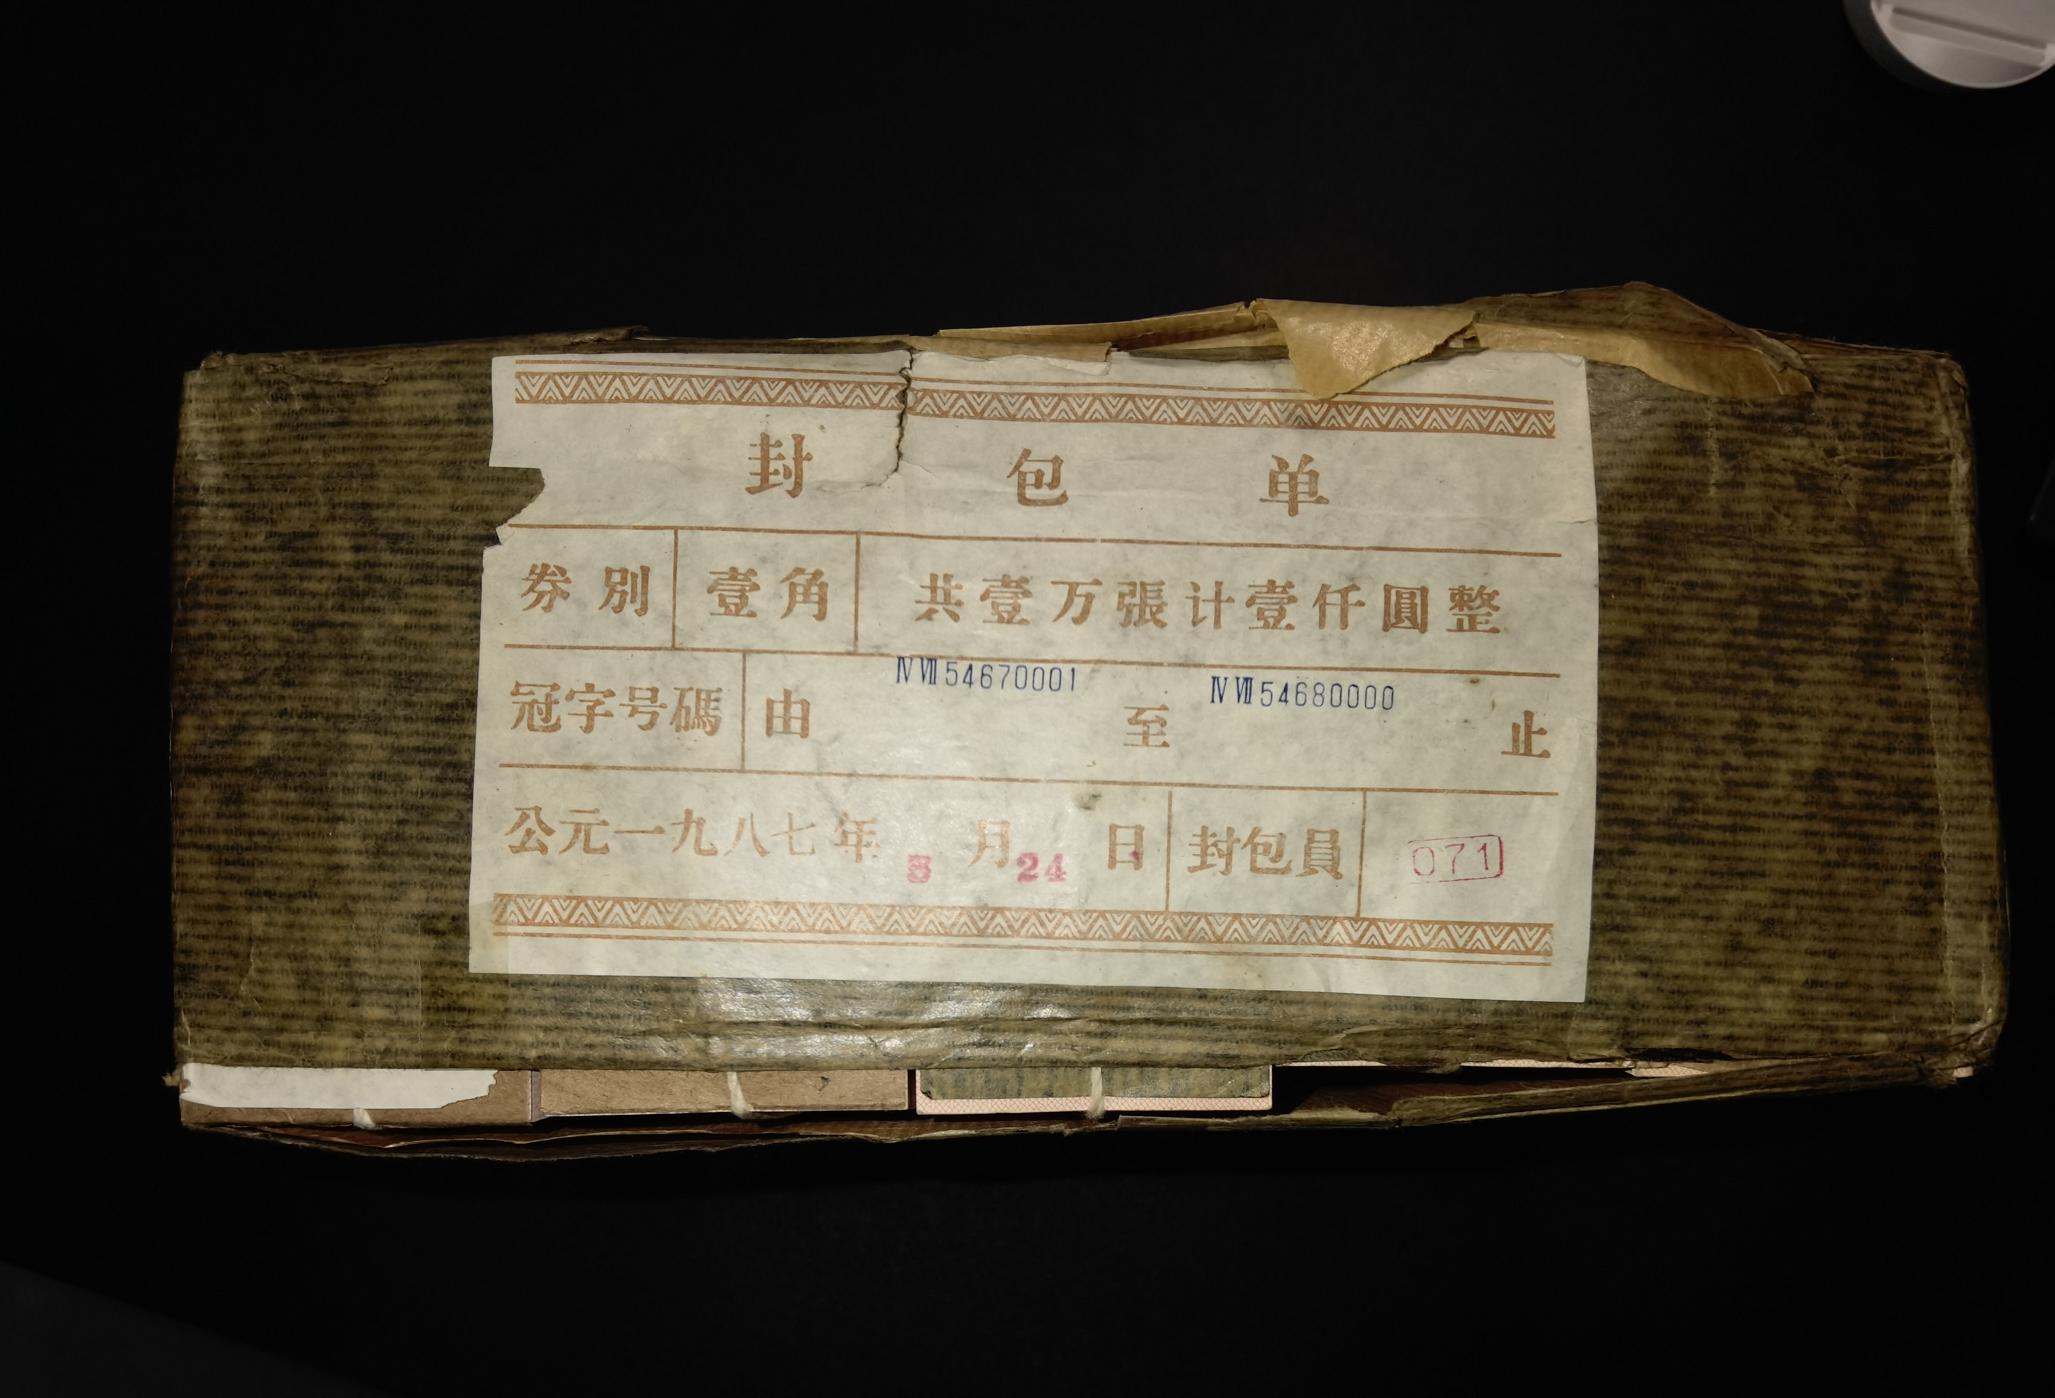 封包单
券別 壹角 共壹万張计壹仟圓整
冠字号碼 由 ⅣⅦ54670001 至 ⅣⅦ54680000 止
公元一九八七年 月 24 日 封包員 071